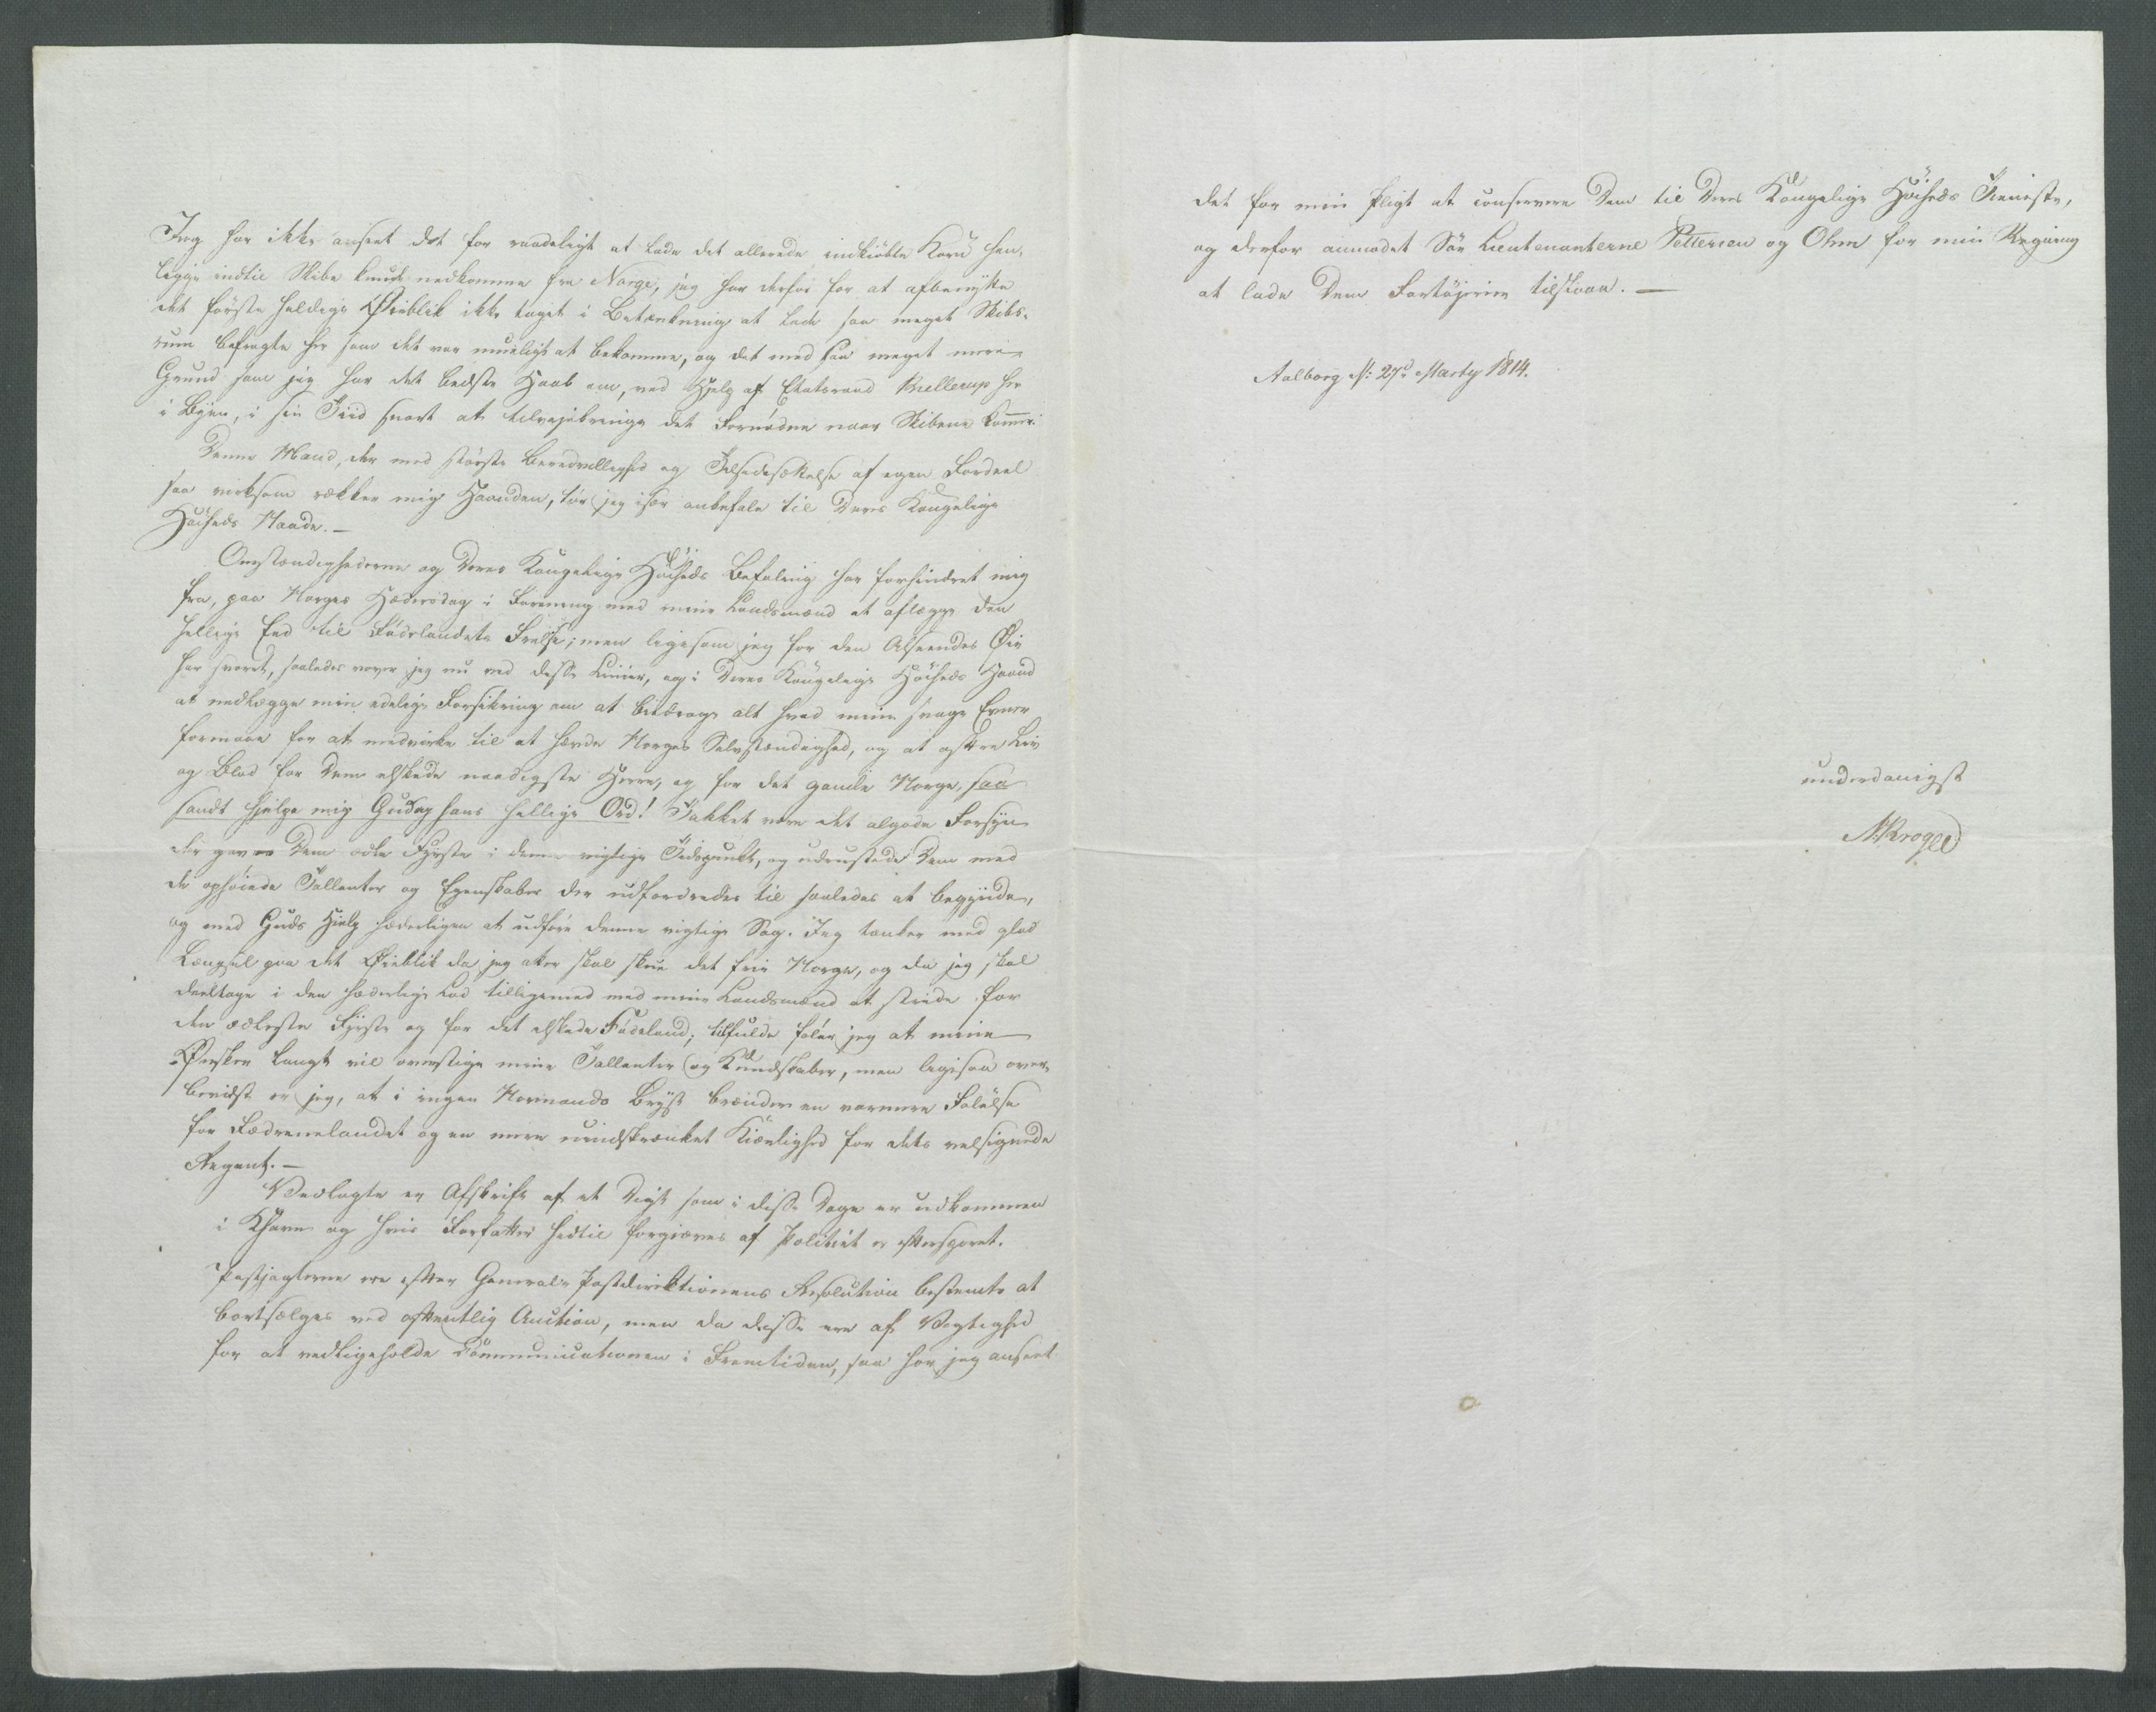 Jeg har ikke anseet det for raadeligt at lade det allerede indkiöbte Korn hen-
ligge indtil Skibe kunde nedkomme fra Norge, jeg har derfor for at afbenytte
det förste heldige Øieblik ikke taget i Betænkning at lade saa meget Skibs-
rum befragte her som det var mueligt at bekomme, og det med saa meget mere
Grund som jeg har det bedste Haab om, ved Hjelp af Etatsraad Kjellerup her
i Byen, i sin Tiid snart at tilvejebringe det Fornödne naar Skibene kommer.
Denne Mand, der med störste Beredvillighed og Tilsidesættelse af egen Fordeel
saa virksom rækker mig Haanden, tör jeg især anbefale til Deres Kongelige
Höiheds Naade. —
Omstændighederne og Deres Kongelige Höiheds Befaling har forhindret mig
fra, paa Norges Hædersdag i Forening med mine Landsmænd at aflægge den
hellige Eed til Födelandets Frelse; men ligesom jeg for den Alseendes Øie
har svoret, saaledes vover jeg nu ved disse Linier, og i Deres Kongelige Höiheds Haand
at nedlægge min edelige Forsikring om at bidrage alt hvad mine svage Evner
formaae for at medvirke til at hævde Norges Selvstændighed, og at offre Liv
og Blod for Dem elskede naadigste Herre, og for det gamle Norge, saa
sandt hjelpe mig Gud og hans hellige Ord! Takket være det algode Forsyn
der gav os Dem ædle Fyrste i denne vigtige Tidspunkt, og udrustede Dem med
de ophöiede Tallenter og Egenskaber der udfordredes til saaledes at begynde,
og med Guds Hjelp hæderligen at udföre denne vigtige Sag. Jeg tænker med glad
Længsel paa det Øieblik da jeg atter skal skue det frie Norge, og da jeg skal
deeltage i den hæderlige Lod tilligemed med mine Landsmænd at stride for
den ædleste Fyrste og for det elskede Födeland; tilfulde föler jeg at mine
Ønsker langt vil overstige mine Tallenter og Kundskaber, men ligesaa over-
beviist er jeg, at i ingen Normands Bryst brænder en varmere Fölelse
for Fædrenelandet og en mere uindskrænket Kiærlighed for dets velsignede
Regent. —
Vedlagte er Afskrift af et Digt som i disse Dage er udkommen
i Khavn og hvis Forfatter hidtil forgiæves af Politiet er eftersporet.
Postjagterne ere efter General-Postdirektionens Resolution bestemte at
bortsælges ved offentlig Auction, men da disse ere af Vigtighed
for at vedligeholde Communicationen i Fremtiden, saa har jeg anseet
det for min Pligt at conservere Dem til Deres Kongelige Höiheds Tieneste,
og derfor anmodet Söe Lieutenanterne Pettersen og Ohm for min Regning
at lade Dem Fartöjerne tilslaae. —
Aalborg d: 27d Marty 1814.
underdanigst
N. Krogh